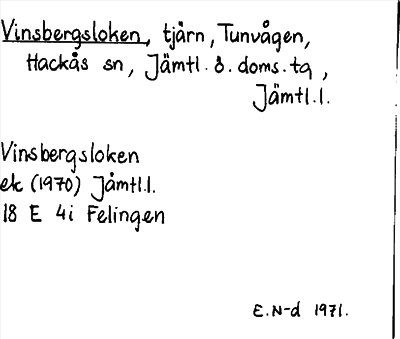 Vinsbergsloken, tjärn, Tunvågen,
Hackås sn, Jämtl. ö. doms. tg,
Jämtl. l.
Vinsbergsloken
ek (1970) Jämtl.l.
18 E 4i Felingen
E.N-d 1971.